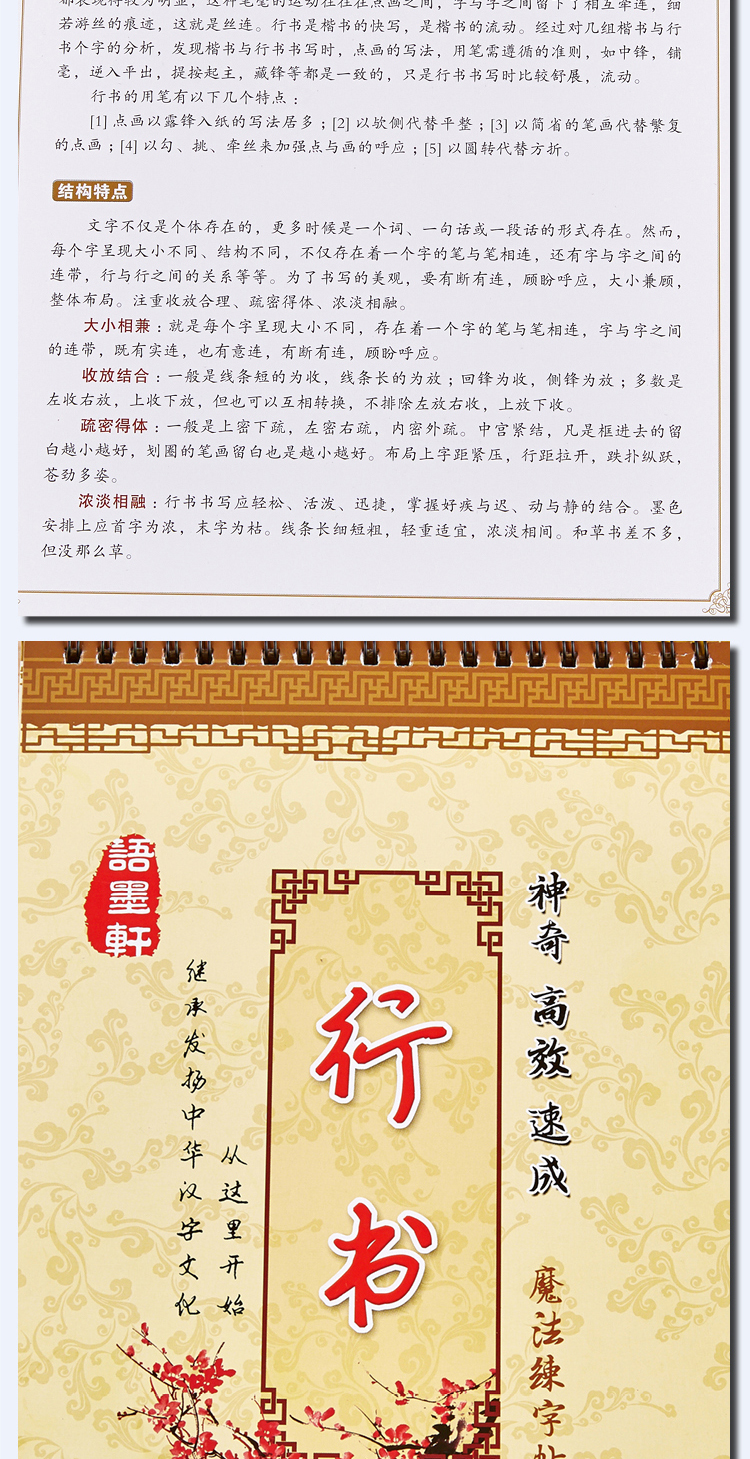 都表现得较为明显，这种笔毫的运动往往在点画之间，字与字之间留下了相互牵连，细
若游丝的痕迹，这就是丝连。行书是楷书的快写，是楷书的流动。经过对几组楷书与行
书个字的分析，发现楷书与行书书写时，点画的写法，用笔需遵循的准则，如中锋，铺
毫，逆入平出，提按起主，藏锋等都是一致的，只是行书书写时比较舒展，流动。
行书的用笔有以下几个特点：
[1] 点画以露锋入纸的写法居多；[2] 以欹侧代替平整；[3] 以简省的笔画代替繁复
的点画；[4] 以勾、挑、牵丝来加强点与画的呼应；[5] 以圆转代替方折。
结构特点
文字不仅是个体存在的，更多时候是一个词、一句话或一段话的形式存在。然而，
每个字呈现大小不同、结构不同，不仅存在着一个字的笔与笔相连，还有字与字之间的
连带，行与行之间的关系等等。为了书写的美观，要有断有连，顾盼呼应，大小兼顾，
整体布局。注重收放合理、疏密得体、浓淡相融。
大小相兼：就是每个字呈现大小不同，存在着一个字的笔与笔相连，字与字之间
的连带，既有实连，也有意连，有断有连，顾盼呼应。
收放结合：一般是线条短的为收，线条长的为放；回锋为收，侧锋为放；多数是
左收右放，上收下放，但也可以互相转换，不排除左放右收，上放下收。
疏密得体：一般是上密下疏，左密右疏，内密外疏。中宫紧结，凡是框进去的留
白越小越好，划圈的笔画留白也是越小越好。布局上字距紧压，行距拉开，跌扑纵跃，
苍劲多姿。
浓淡相融：行书书写应轻松、活泼、迅捷，掌握好疾与迟、动与静的结合。墨色
安排上应首字为浓，末字为枯。线条长细短粗，轻重适宜，浓淡相间。和草书差不多，
但没那么草。
神奇 高效 速成
魔法练字帖
行书
語墨軒
从这里开始
继承发扬中华汉字文化